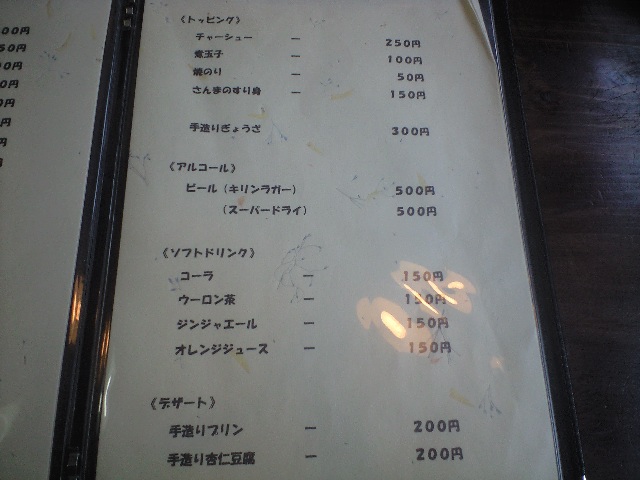 《トッピング》
チャーシュー ー 250円
煮玉子 ー 100円
焼のり ー 50円
さんまのすり身 ー 150円
手造りぎょうざ 300円
《アルコール》
ビール（キリンラガー） 500円
（スーパードライ） 500円
《ソフトドリンク》
コーラ ー 150円
ウーロン茶 ー 150円
ジンジャエール ー 150円
オレンジジュース ー 150円
《デザート》
手造りプリン ー 200円
手造り杏仁豆腐 ー 200円